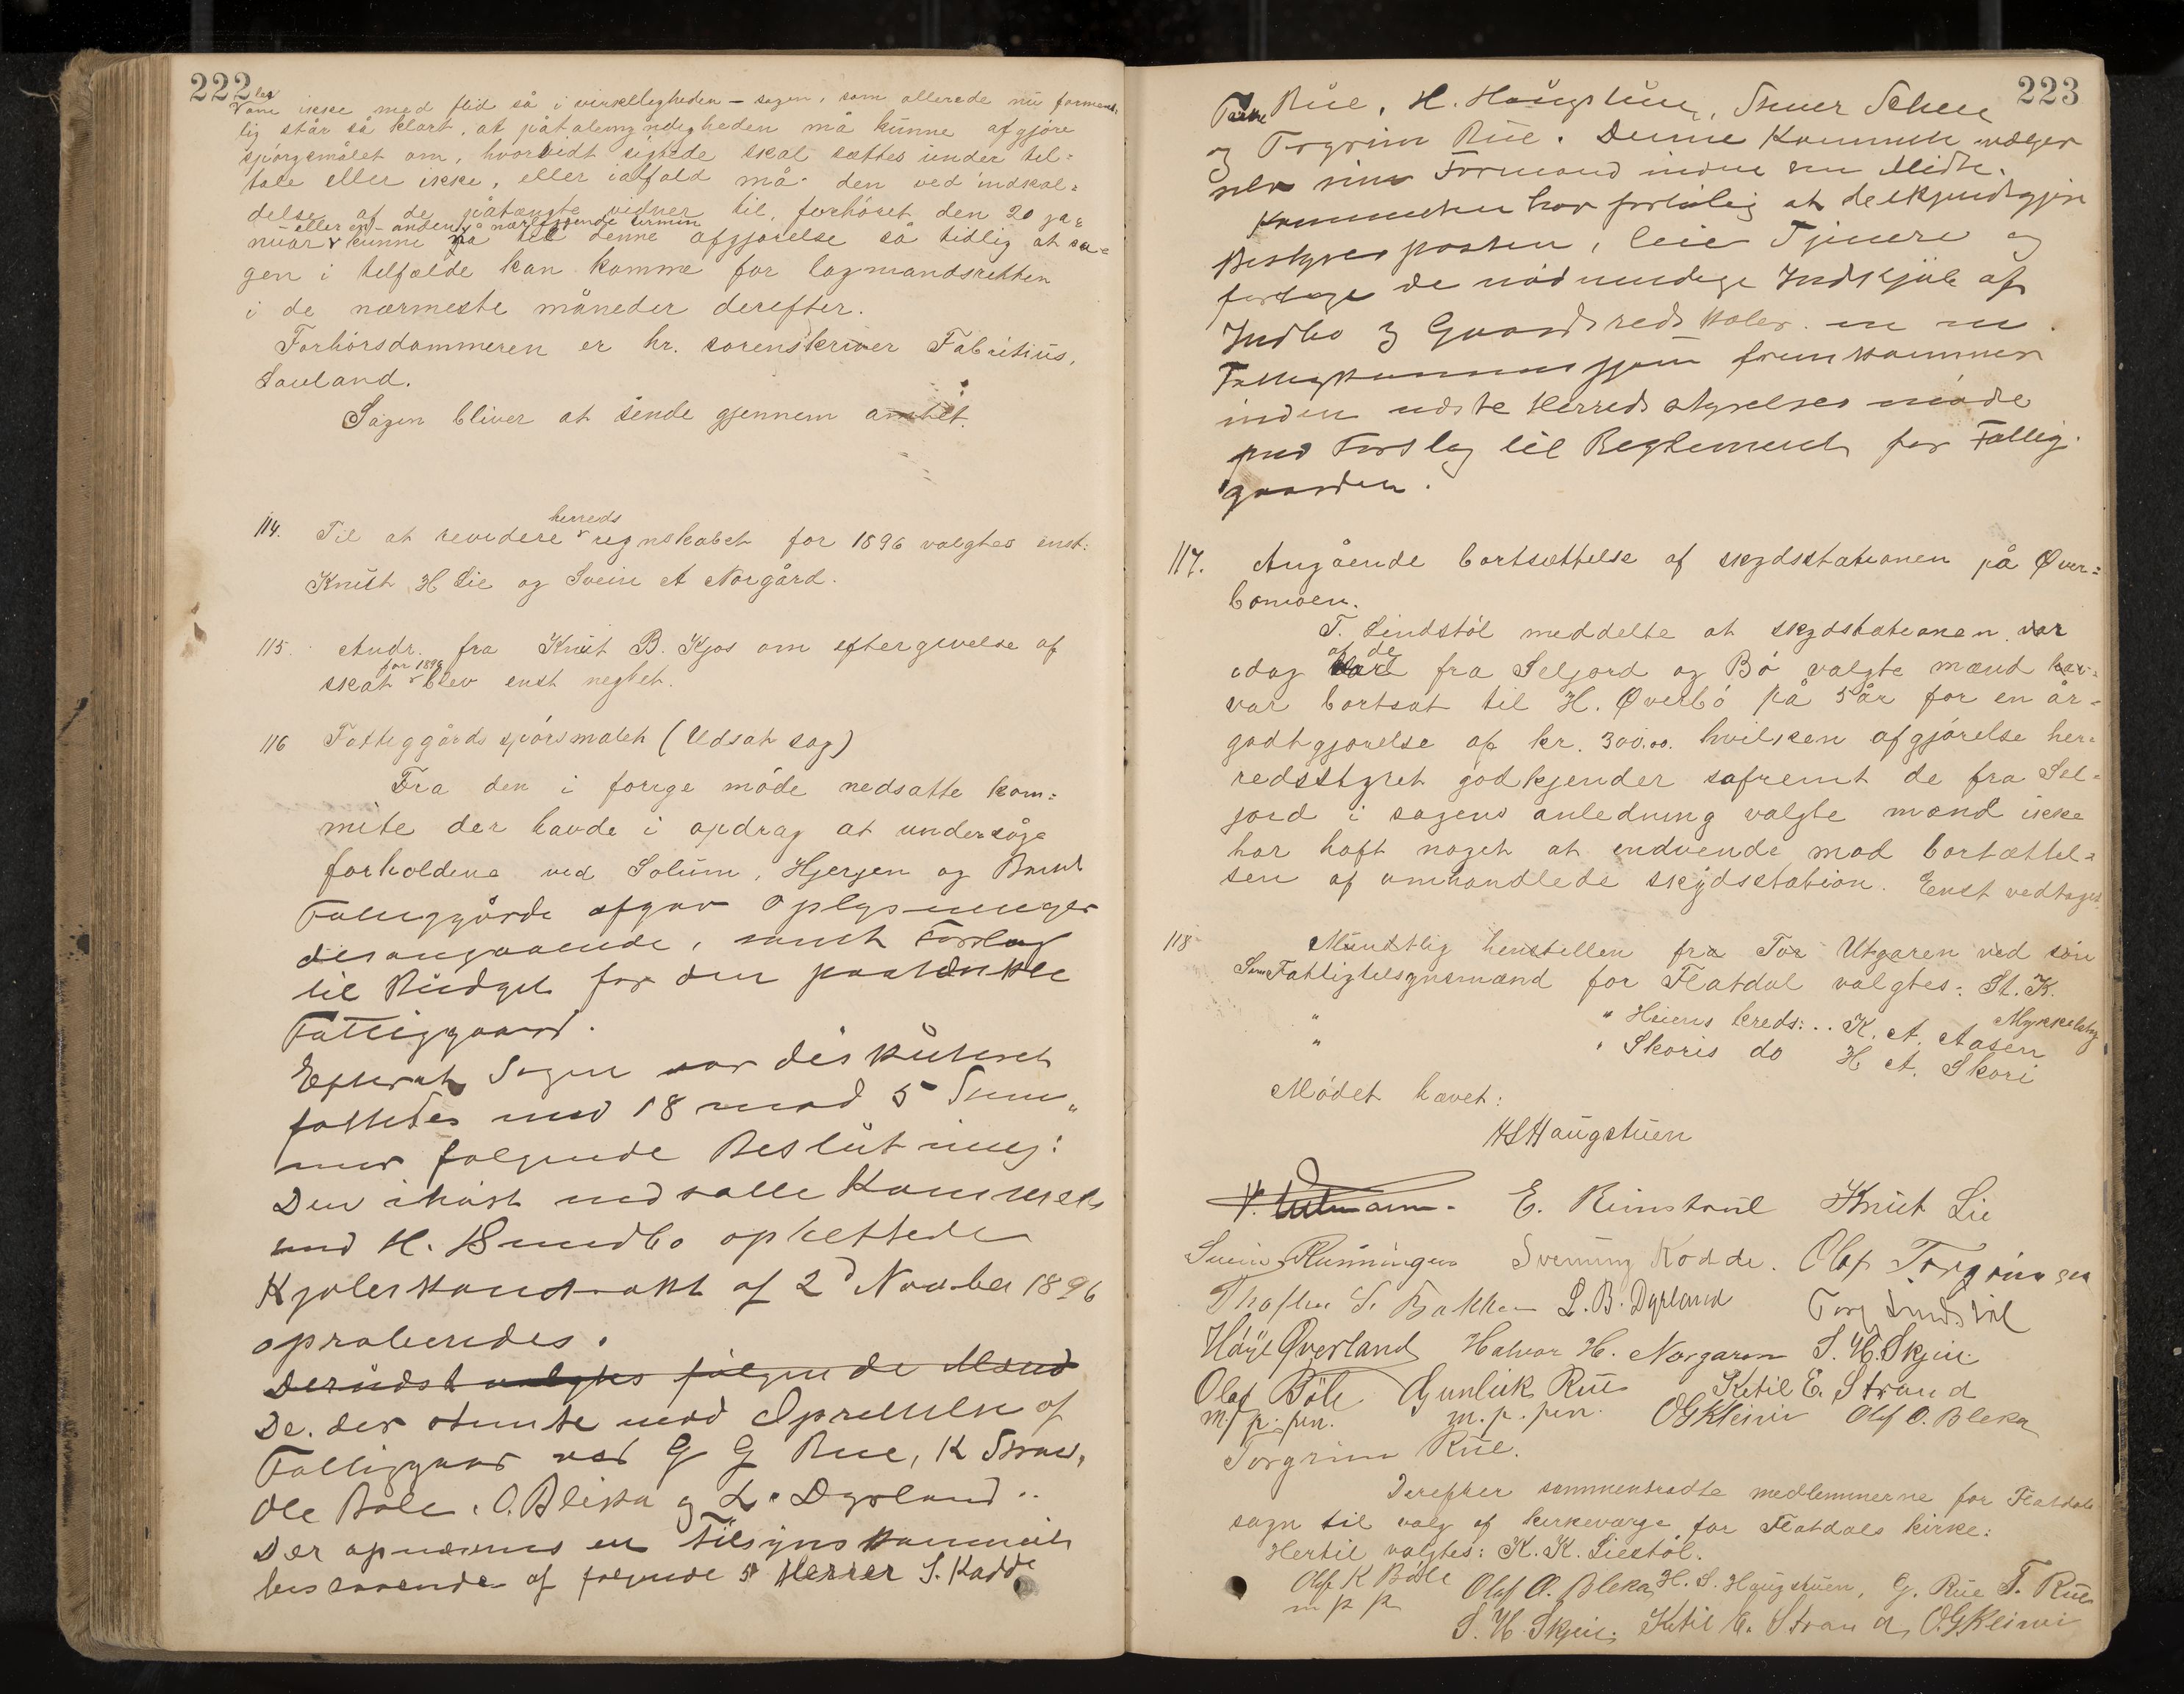 222
være ikke med flid så i virkeligheden – sagen, som allerede nu forment-
lig står så klart, at påtalemyndigheden må kunne afgjøre
spørgsmålet om, hvorvidt sigtede skal sættes under til=
tale eller ikke, eller ialfald må den ved indkal=
delse af de påtænkte vidner til forhöret den 20 ja=
eller en anden nærliggende termin
nuar kunne nå til denne afgjørelse så tidlig at sa=
gen i tilfælde kan komme for lagmandsretten
i de nærmeste måneder derefter.
Forhörsdommeren er hr. sorenskriver Fabritius,
Sauland.
Sagen bliver at sende gjennem amtet.
114. Til at revidere herreds regnskabet for 1896 valgtes enst:
Knut H Lie og Svein A Norgård.
115. Andr. fra Knut B. Kjos om eftergivelse af
skat for 1896 blev enst negtet.
116 Fattiggårds spörsmalet (Udsat sag)
Fra den i forrige möde nedsatte kom=
mite der havde i opdrag at undersöge
forholdene ved Solum, Hjerjen og
Fattiggårde afgav Oplysninger
desangaaende, samt Forslag
til Budget for den paatænkte
Fattiggaard.
Efterat Sagen var diskuteret
fattedes med 18 mod 5 Stem„
mer følgende Beslutning:
Den ihöst nedsatte Kommites
med H. Sundbo oprettede
Kjøbekontrakt af 2d November 1896
aproberedes.
Derudst valgtes følgende Mænd
De. der stemte mod Oprettelse af
Fattiggaar var G G Rue, K Strand,
Ole Böle, O. Bleka og L. Dyrland..
Der opnævnes en Tilsynskommite
bestaaende af følgende 5 Herrer S. Kadde
223
Rue, H. Haugstuen, Skeie
og Torgrim Rue. Denne Kommite vælger
selv sin Formand indue sin Midte.
Kommiteen har forlølig at bekjendtgjøre
Bestyrerposten, leie Tjenere og
foretage de nødvendige Indkjøb af
Indbo og Gaardsredskaber. m m.
Fattigkommissjon fremkommer
inden næste Herredsstyrelses møde
med Forslag til Reglement for Fattig-
gaarden.
117. Angående bortsættelse af skydsstationen på Øver=
bömoen.
T. Lindstöl meddelte at skydsstationen var
idag af de fra Seljord og Bö valgte mænd
var bortsat til H. Øverbö på 5 år for en år=
godtgjørelse af kr. 300.00. hvilken afgjörelse her=
redsstyret godkjender såfremt de fra Sel=
jord i sagens anledning valgte mænd ikke
har haft noget at indvende mod bortsættel=
sen af omhandlede skydsstation. Enst vedtaget.
118 Mundtlig henstillen fra Tor Utgaren ved sön
Som Fattigtilsynsmænd for Flatdal valgtes: St. K.
Mykkelbty
" " Heiens kreds: .. K. A. Aasen
" " Skoris do H A. Skori
Mödet hævet:
HS Haugstuen
E. Rinstaul Knut Lie
Svein Rünningen Svenung Kodde. Olaf Torgrimsen
S. Bakken L. B. Dyrland Torj Lindstöl
Höije Øverland Halvor H. Norgaren S. H. Skjeie
Olaf Böle Gunleik Rue Ketil E. Strand
m. p. pen. m. p. pen. OG Kleivi Olaf O. Bleka
Torgrim Rue.
Derefter sammentraadte medlemmerne for Flatdals
sogn til valg af kirkeværge for Flatdals kirke:
Hertil valgtes: K. K. Liestöl.
Olaf K Böle Olaf O. Bleka, H. S. Haugstuen, G. Rue T. Rue
m p p
S. H. Skjeie, Ketil E. Strand, O.G. Kleivi